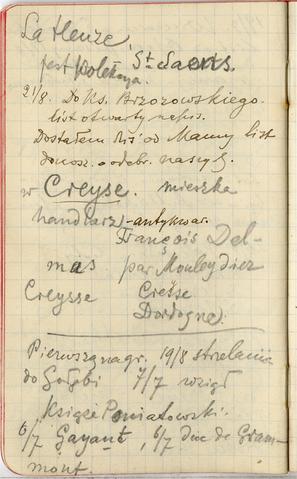 La Heuze,
jest kolekcja. St. Saens.
21/8. Do Ks. Brzozowskiego.
list otwarty napis.
Dostałem dziś od Mamy list
donosz. o odebr. naszych.
w Creyse. mieszka
handlarz-antykwar.
François Del-
mas par Mouleydier
Creysse Creÿse
Dordogne).
Pierwsza nagr. 19/8 strzelanie
do Gołębi 7/7 wziął
Książe Poniatowski.
6/7 Gayant, 6/7 duc de Gram-
mont.